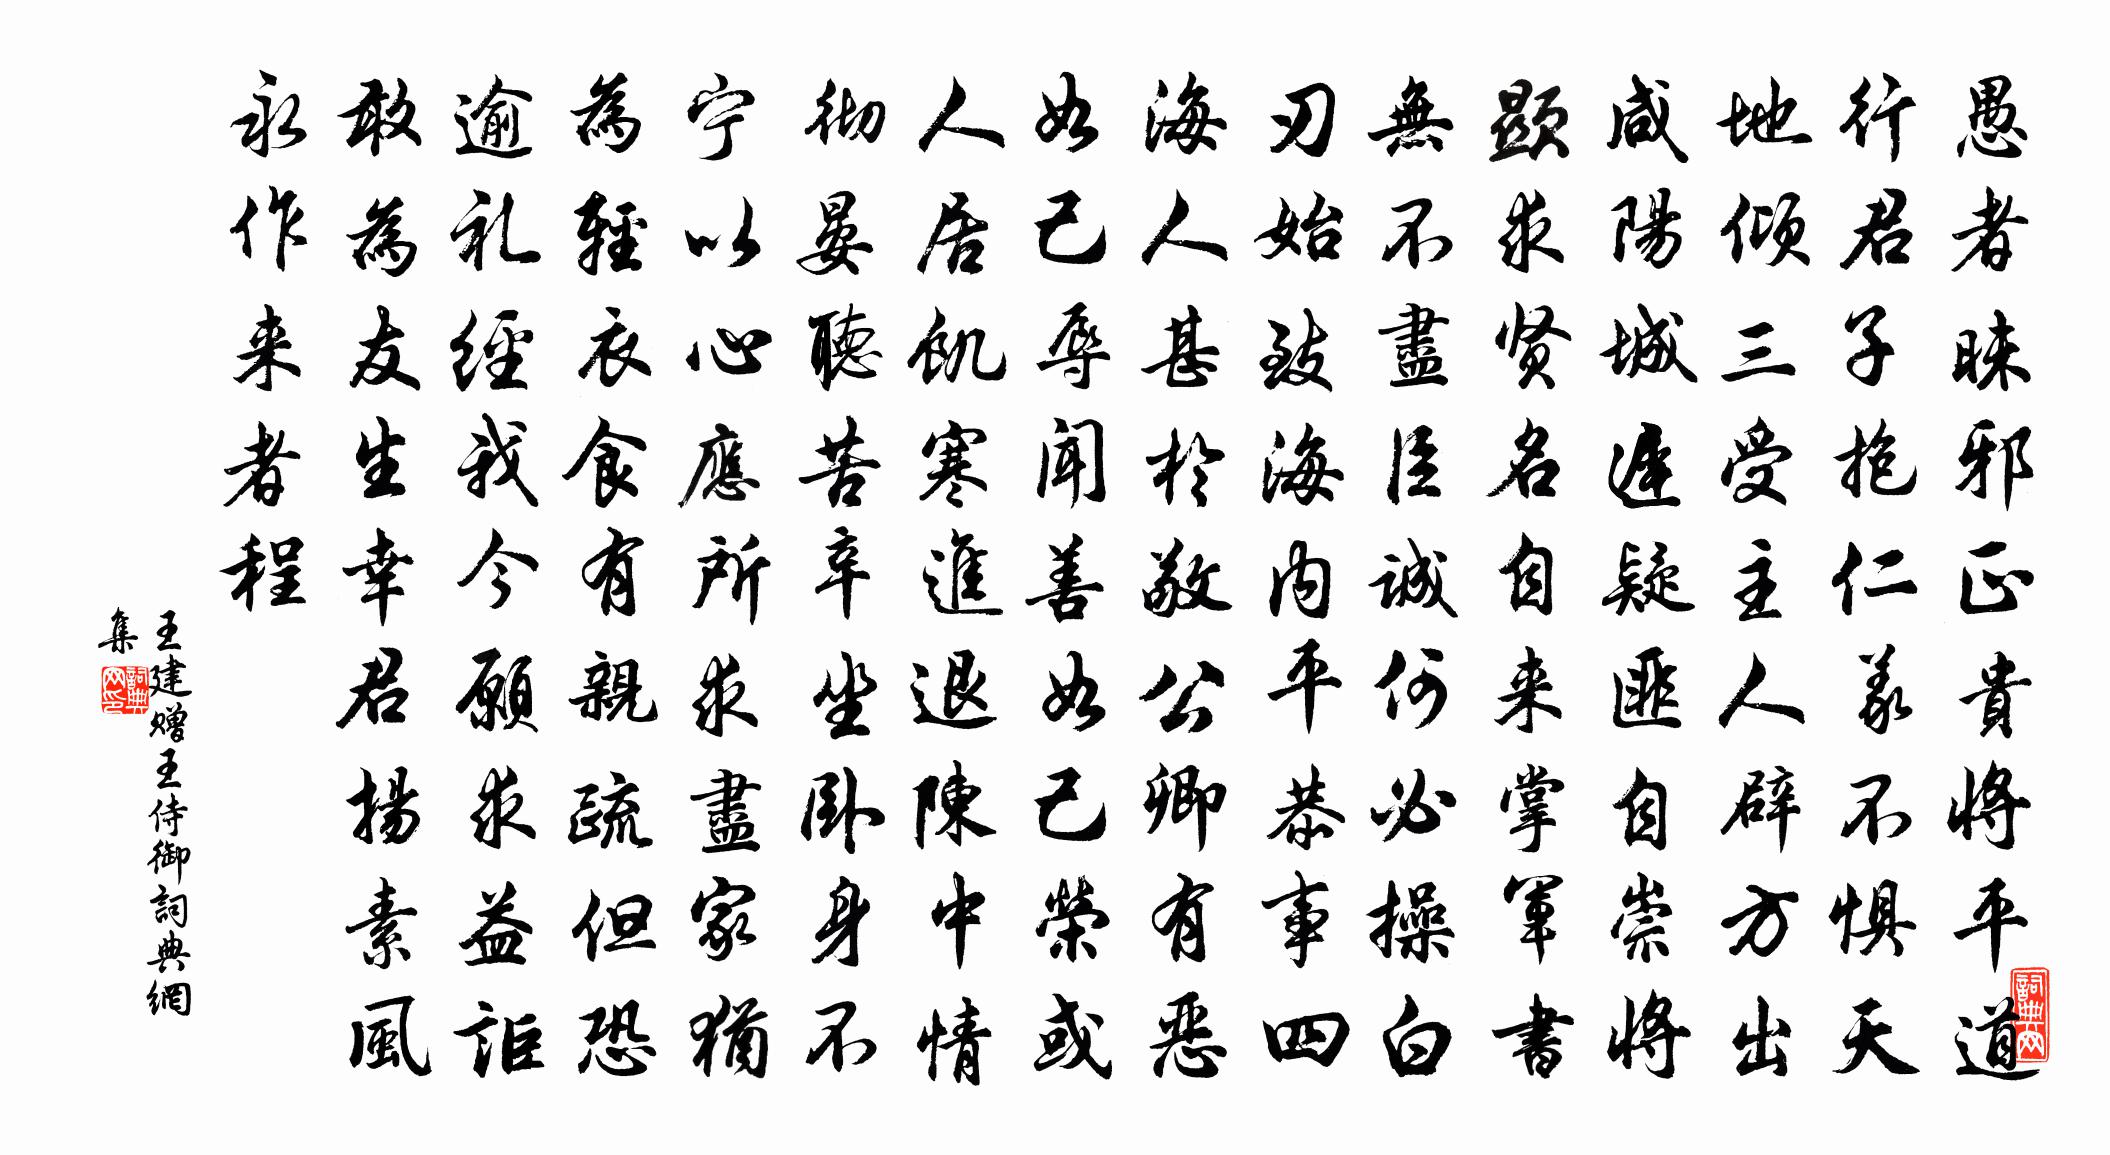 愚者昧邪正貴將平道
行君子抱仁義不懼天
地傾三受主人辟方出
咸陽城遲疑匪自崇將
顯求贤名自来掌軍書
無不盡臣誠何必操白
刃始致海内平恭事四
海人甚於敬公卿有惡
如己辱聞善如己榮或
人居飢寒進退陳中情
彻晏聽苦辛坐卧身不
宁以心應所求盡家猶
為輕衣食有親疏但恐
逾礼經我今願求益詎
敢為友生幸君揚素風
永作来者程
王建赠王侍御詞典網
集
詞典网印
詞典网